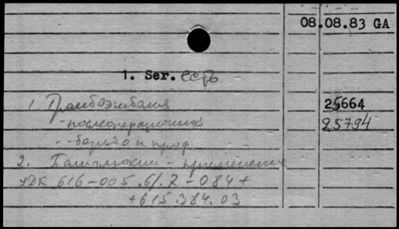 08.08.83 GA
1. Ser. есть
1. Тромбоэмболия 25664
- послеоперационная 25794
- борьба и проф.
2. - применение
УДК 616-005.6/.7-084+
+615.384.03